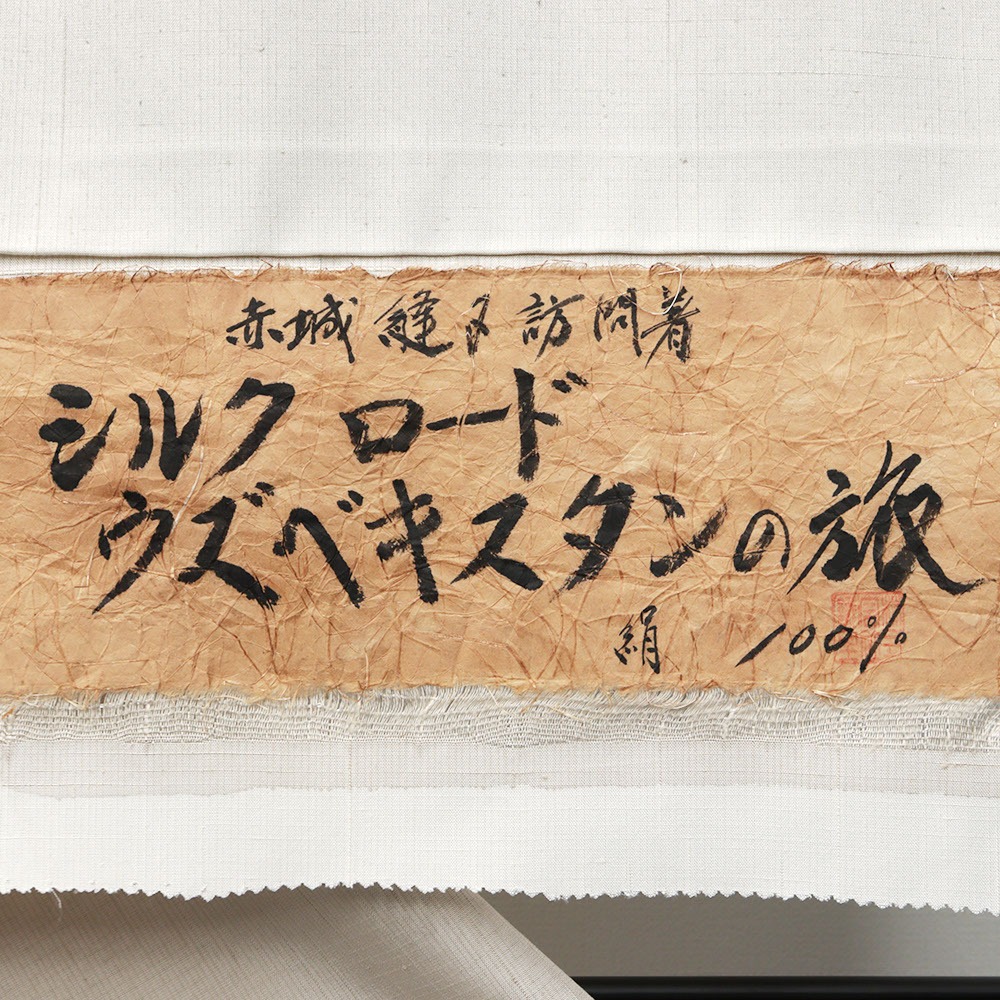 赤城 縫〆 訪問着
シルク ロード
ウズベキスタンの旅
絹 100%